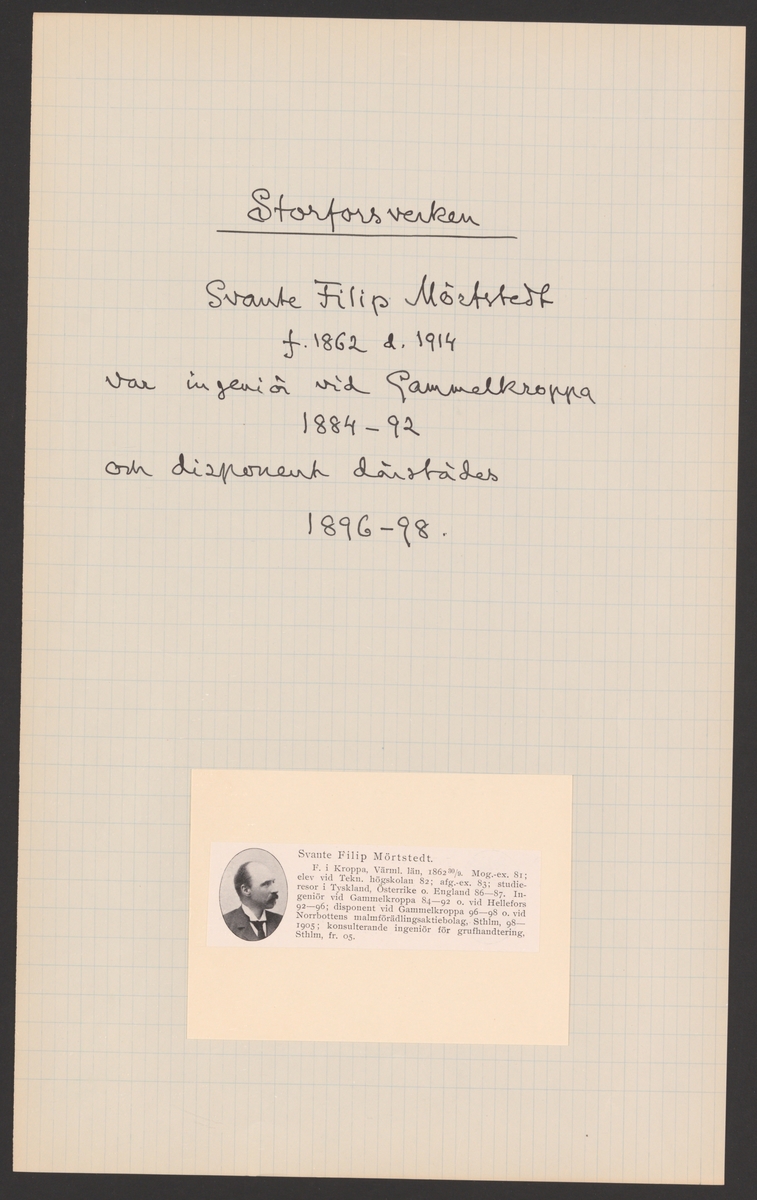 Storforsverken
Svante Filip Mörtstedt
f. 1862 d. 1914
var ingeniör vid Gammelkroppa
1884-92
och disponent därstädes
1896-98.
Svante Filip Mörtstedt.
F. i Kroppa, Värml. län, 1862 30/9. Mog.-ex. 81;
elev vid Tekn. högskolan 82; afg.-ex. 83; studie-
resor i Tyskland, Österrike o. England 86—87. In-
geniör vid Gammelkroppa 84—92 o. vid Hellefors
92—96; disponent vid Gammelkroppa 96—98 o. vid
Norrbottens malmförädlingsaktiebolag, Sthlm, 98—
1905; konsulterande ingeniör för grufhandtering,
Sthlm, fr. 05.